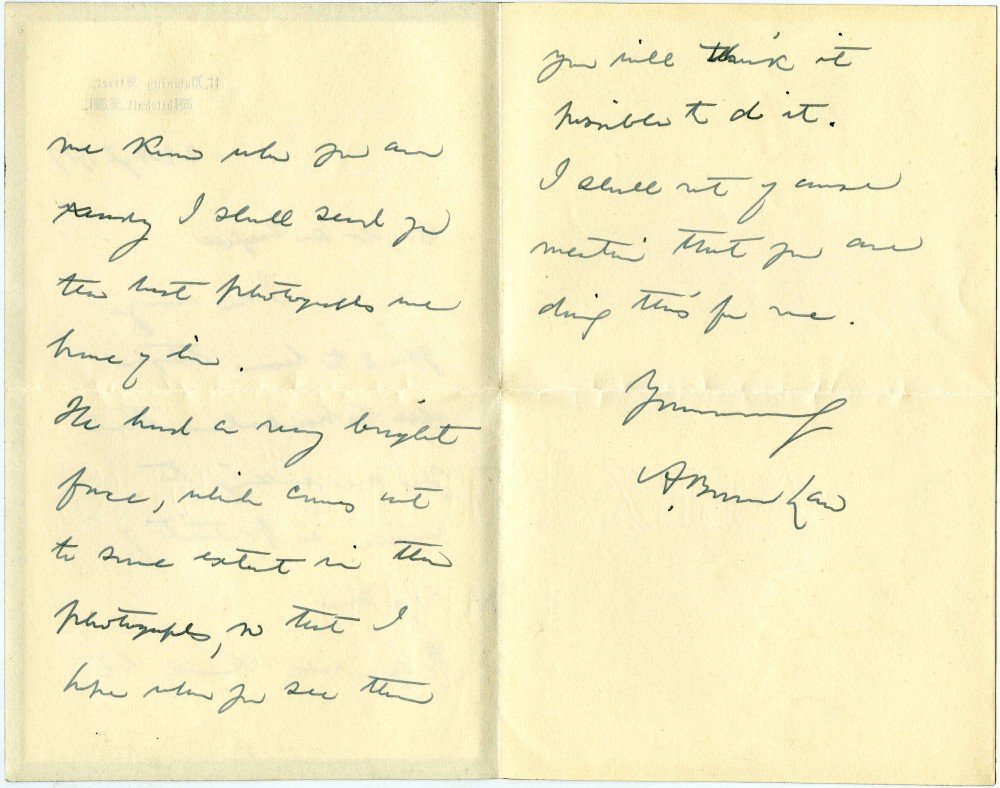 me know when you are
ready I shall send you
the best photographs we
have of him.
He had a very bright
face, which comes out
to some extent in the
photographs, so that I
hope when you see them
you will think it
possible to do it.
I shall not of course
mention that you are
doing this for me.
Yours
A Bonar Law
11, Downing Street,
Whitehall, S.W.